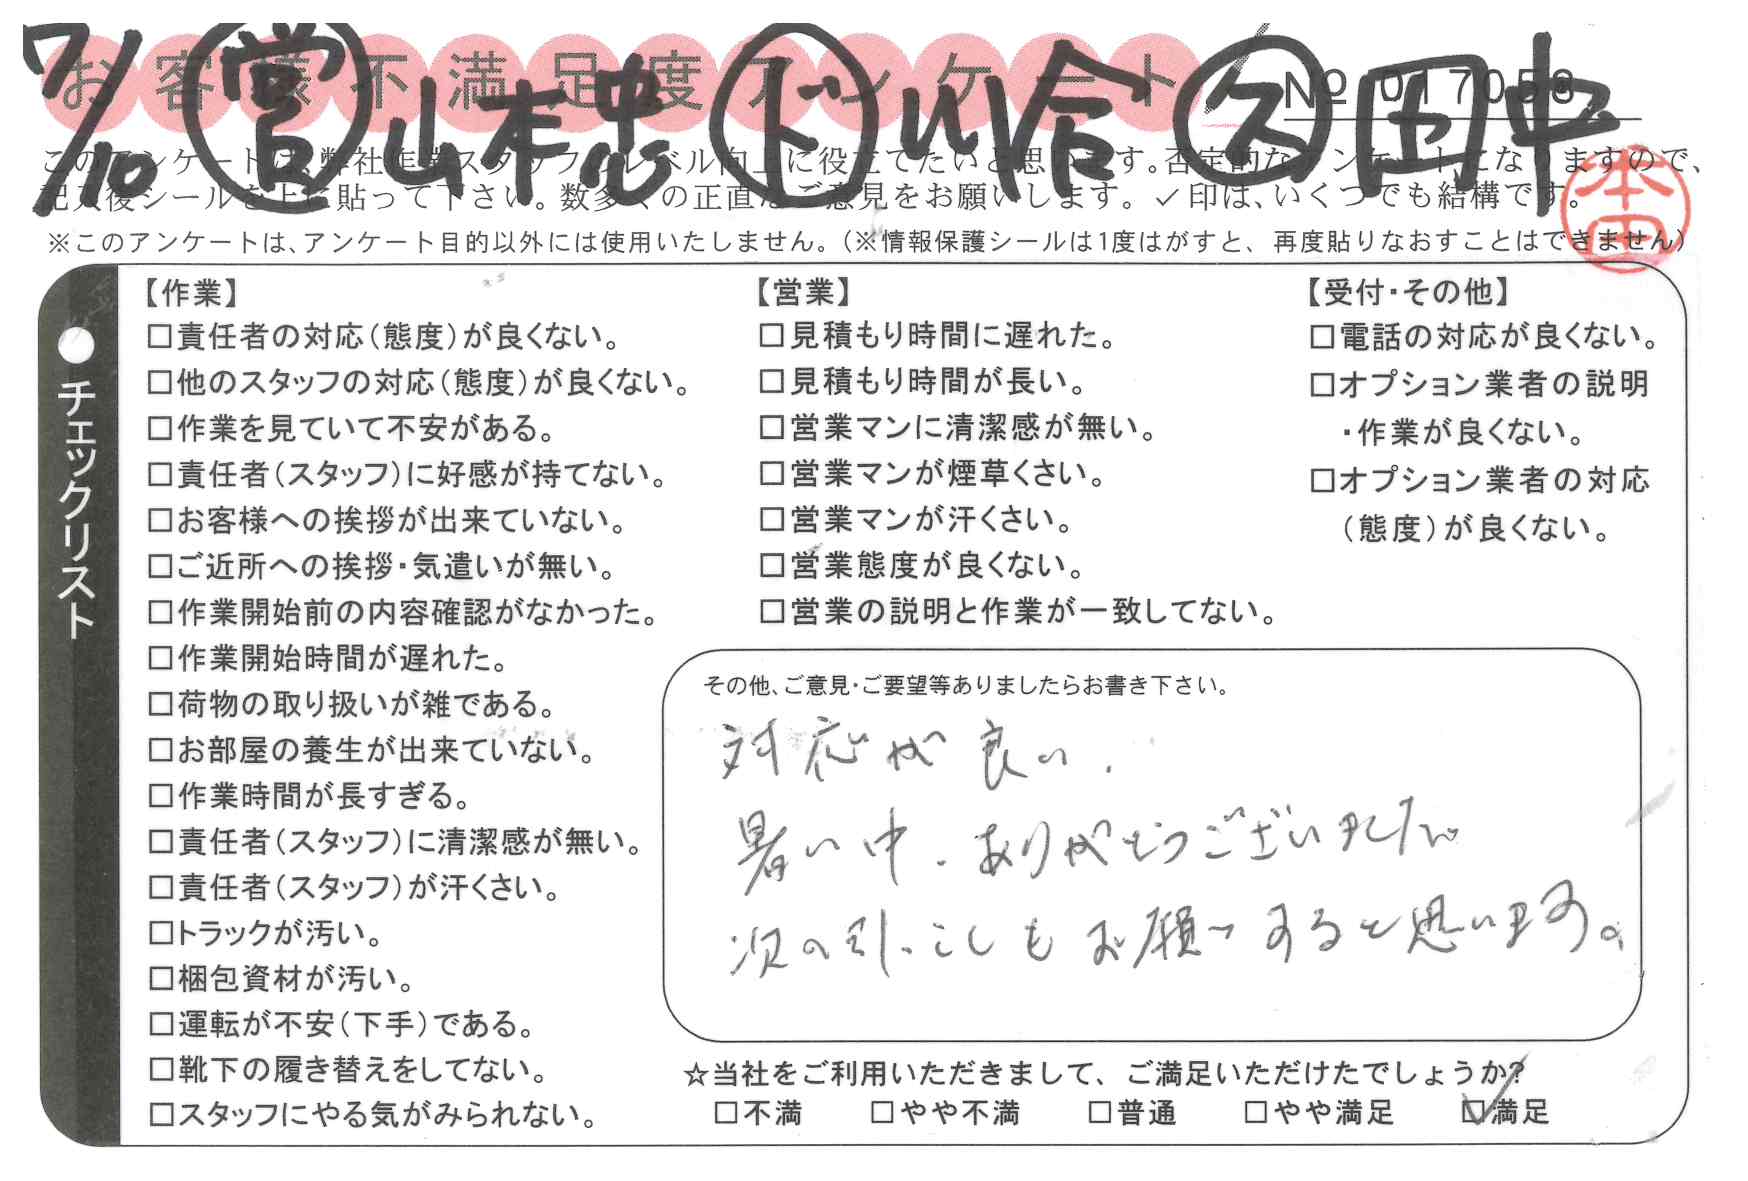 7/10 営 山本忠 ド 川合 久 田中
お客様不満足度アンケート
No 017058
このアンケートは、弊社作業スタッフのレベル向上に役立てたいと思います。否定的なアンケートになりますので、
記入後シールを上に貼って下さい。数多くの正直なご意見をお願いします。✓印は、いくつでも結構です。
本田
※このアンケートは、アンケート目的以外には使用いたしません。（※情報保護シールは1度はがすと、再度貼りなおすことはできません）
●チェックリスト
【作業】
□責任者の対応（態度）が良くない。
□他のスタッフの対応（態度）が良くない。
□作業を見ていて不安がある。
□責任者（スタッフ）に好感が持てない。
□お客様への挨拶が出来ていない。
□ご近所への挨拶・気遣いが無い。
□作業開始前の内容確認がなかった。
□作業開始時間が遅れた。
□荷物の取り扱いが雑である。
□お部屋の養生が出来ていない。
□作業時間が長すぎる。
□責任者（スタッフ）に清潔感が無い。
□責任者（スタッフ）が汗くさい。
□トラックが汚い。
□梱包資材が汚い。
□運転が不安（下手）である。
□靴下の履き替えをしてない。
□スタッフにやる気がみられない。
【営業】
□見積もり時間に遅れた。
□見積もり時間が長い。
□営業マンに清潔感が無い。
□営業マンが煙草くさい。
□営業マンが汗くさい。
□営業態度が良くない。
□営業の説明と作業が一致してない。
【受付・その他】
□電話の対応が良くない。
□オプション業者の説明
・作業が良くない。
□オプション業者の対応
（態度）が良くない。
その他、ご意見・ご要望等ありましたらお書き下さい。
対応が良い.
暑い中、ありがとうございました。
次の引っこしもお願いすると思います。
☆当社をご利用いただきまして、ご満足いただけたでしょうか?
□不満 □やや不満 □普通 □やや満足 ☑満足